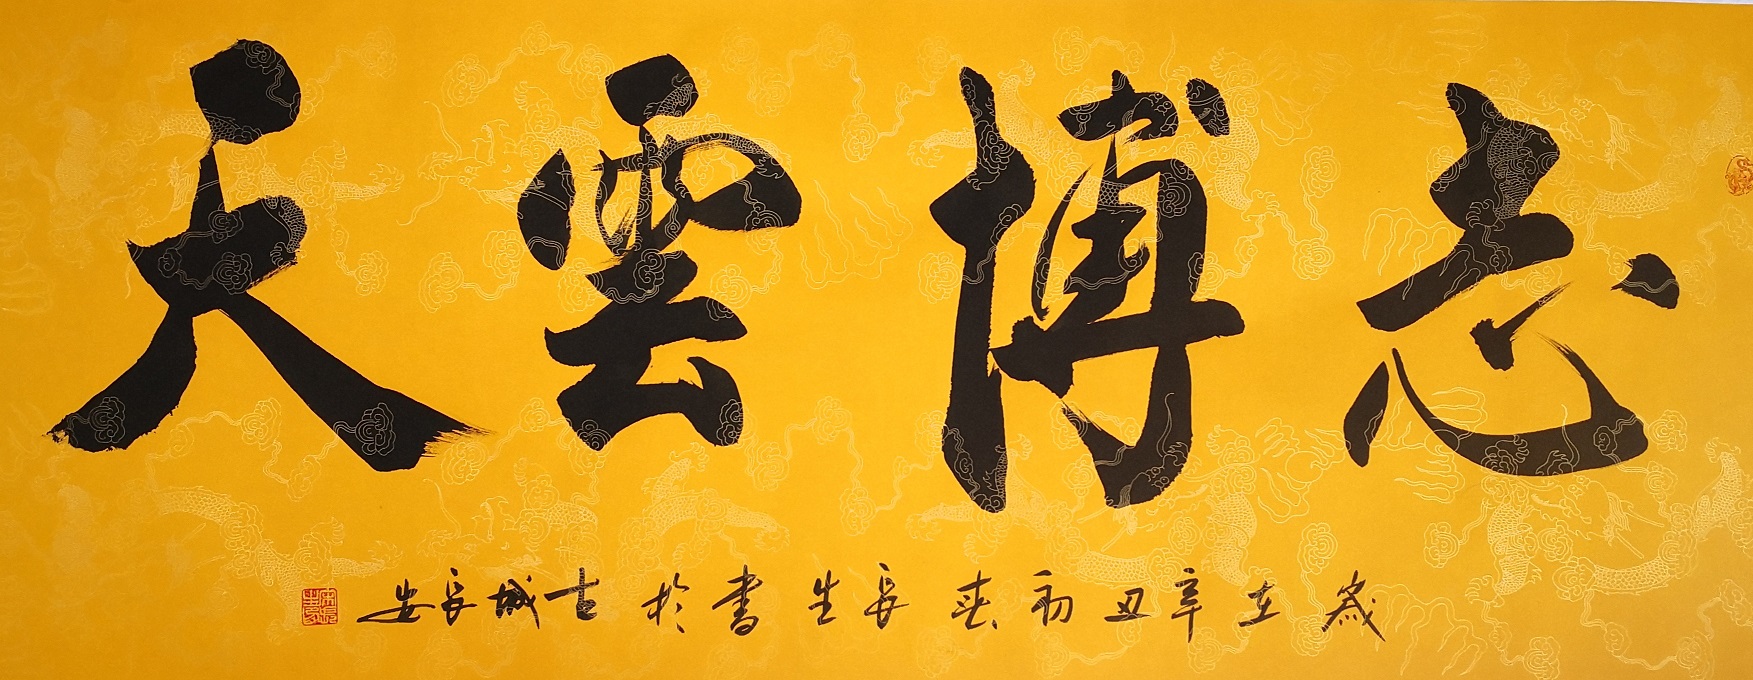 志博雲天
歲在辛丑初春長生書於古城長安